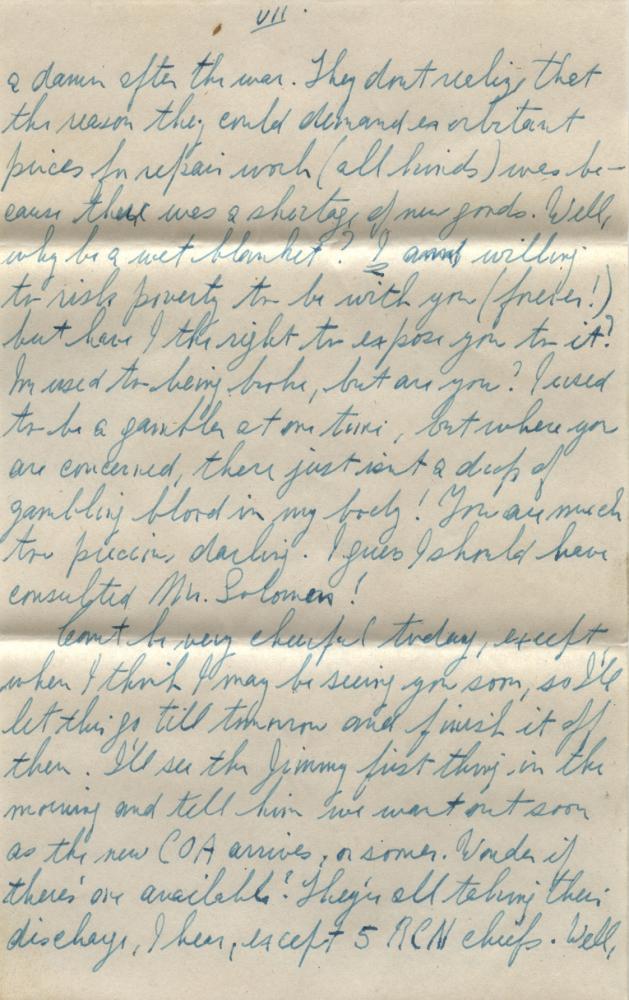 VII.
a damn after the war. They dont realize that
the reason they could demand exorbitant
prices for repair work (all kinds) was be-
cause there was a shortage of new goods. Well,
why be a wet blanket? I am willing
to risk poverty to be with you (forever!)
but have I the right to expose you to it?
I'm used to being broke, but are you? I used
to be a gambler at one time, but where you
are concerned, there just isnt a drop of
gambling blood in my body! You are much
too precious, darling. I guess I should have
consulted Mr. Solomon!
Can't be very cheerful today, except
when I think I may be seeing you soon, so I'll
let this go till tomorrow and finish it off
then. I'll see the Jimmy first thing in the
morning and tell him we want out soon
as the new COA arrives, or sooner. Wonder if
there's one available? They're all taking their
discharge, I hear, except 5 RCN chiefs. Well,